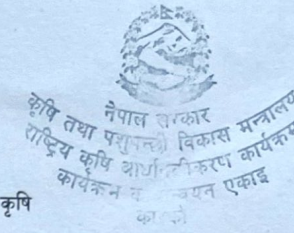 नेपाल सरकार
कृषि तथा पशुपन्छी विकास मन्त्रालय
राष्ट्रिय कृषि आधुनिकीकरण कार्यक्रम
कार्यक्रम एकाइ
कृषि